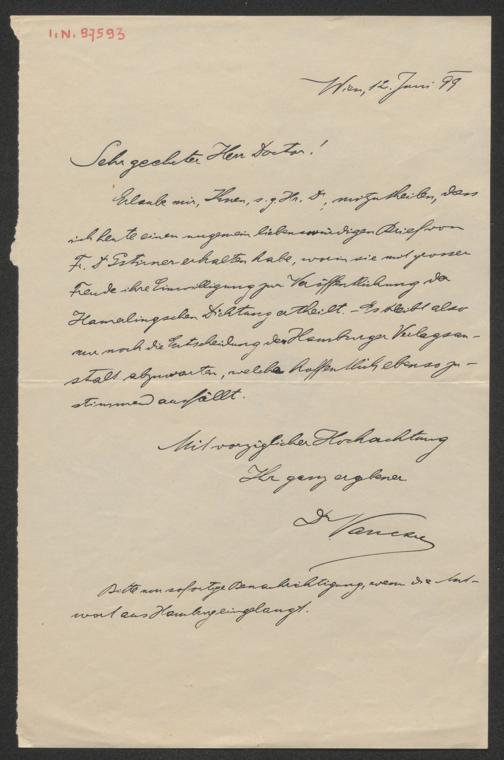 I.N. 97593
Wien, 12. Juni 99
Sehr geehrter Herr Doctor!
Erlaube mir, Ihnen, s. g. Hr. Dr, mitzutheilen, dass
ich heute einen ungemein liebenswürdigen Brief von
Fr. D Gstirner erhalten habe, worin sie mit grosser
Freude ihre Einwilligung zur Veröffentlichung der
Hamerlingschen Dichtung ertheilt. – Es bleibt also
nur noch die Entscheidung der Hamburger Verlagsan-
stalt abzuwarten, welche hoffentlich ebenso zu-
stimmend ausfällt.
Mit vorzüglicher Hochachtung
Ihr ganz ergebener
Dr Vancsa
Bitte um sofortige Benachrichtigung, wenn die Ant-
wort aus Hamburg einglangt.